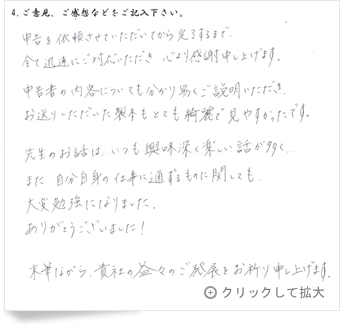 4.ご意見、ご感想などをご記入下さい。
申告を依頼させていただいてから完了するまで、
全て迅速にご対応いただき 心より感謝申し上げます。
申告書の内容についても分かり易くご説明いただき、
お送りいただいた製本もとても綺麗で見やすかったです。
先生のお話は、いつも興味深く楽しい話が多く、
また、自分自身の仕事に通ずるものに関しても、
大変勉強になりました。
ありがとうございました!
末筆ながら、貴社の益々のご発展をお祈り申し上げます。
クリックして拡大